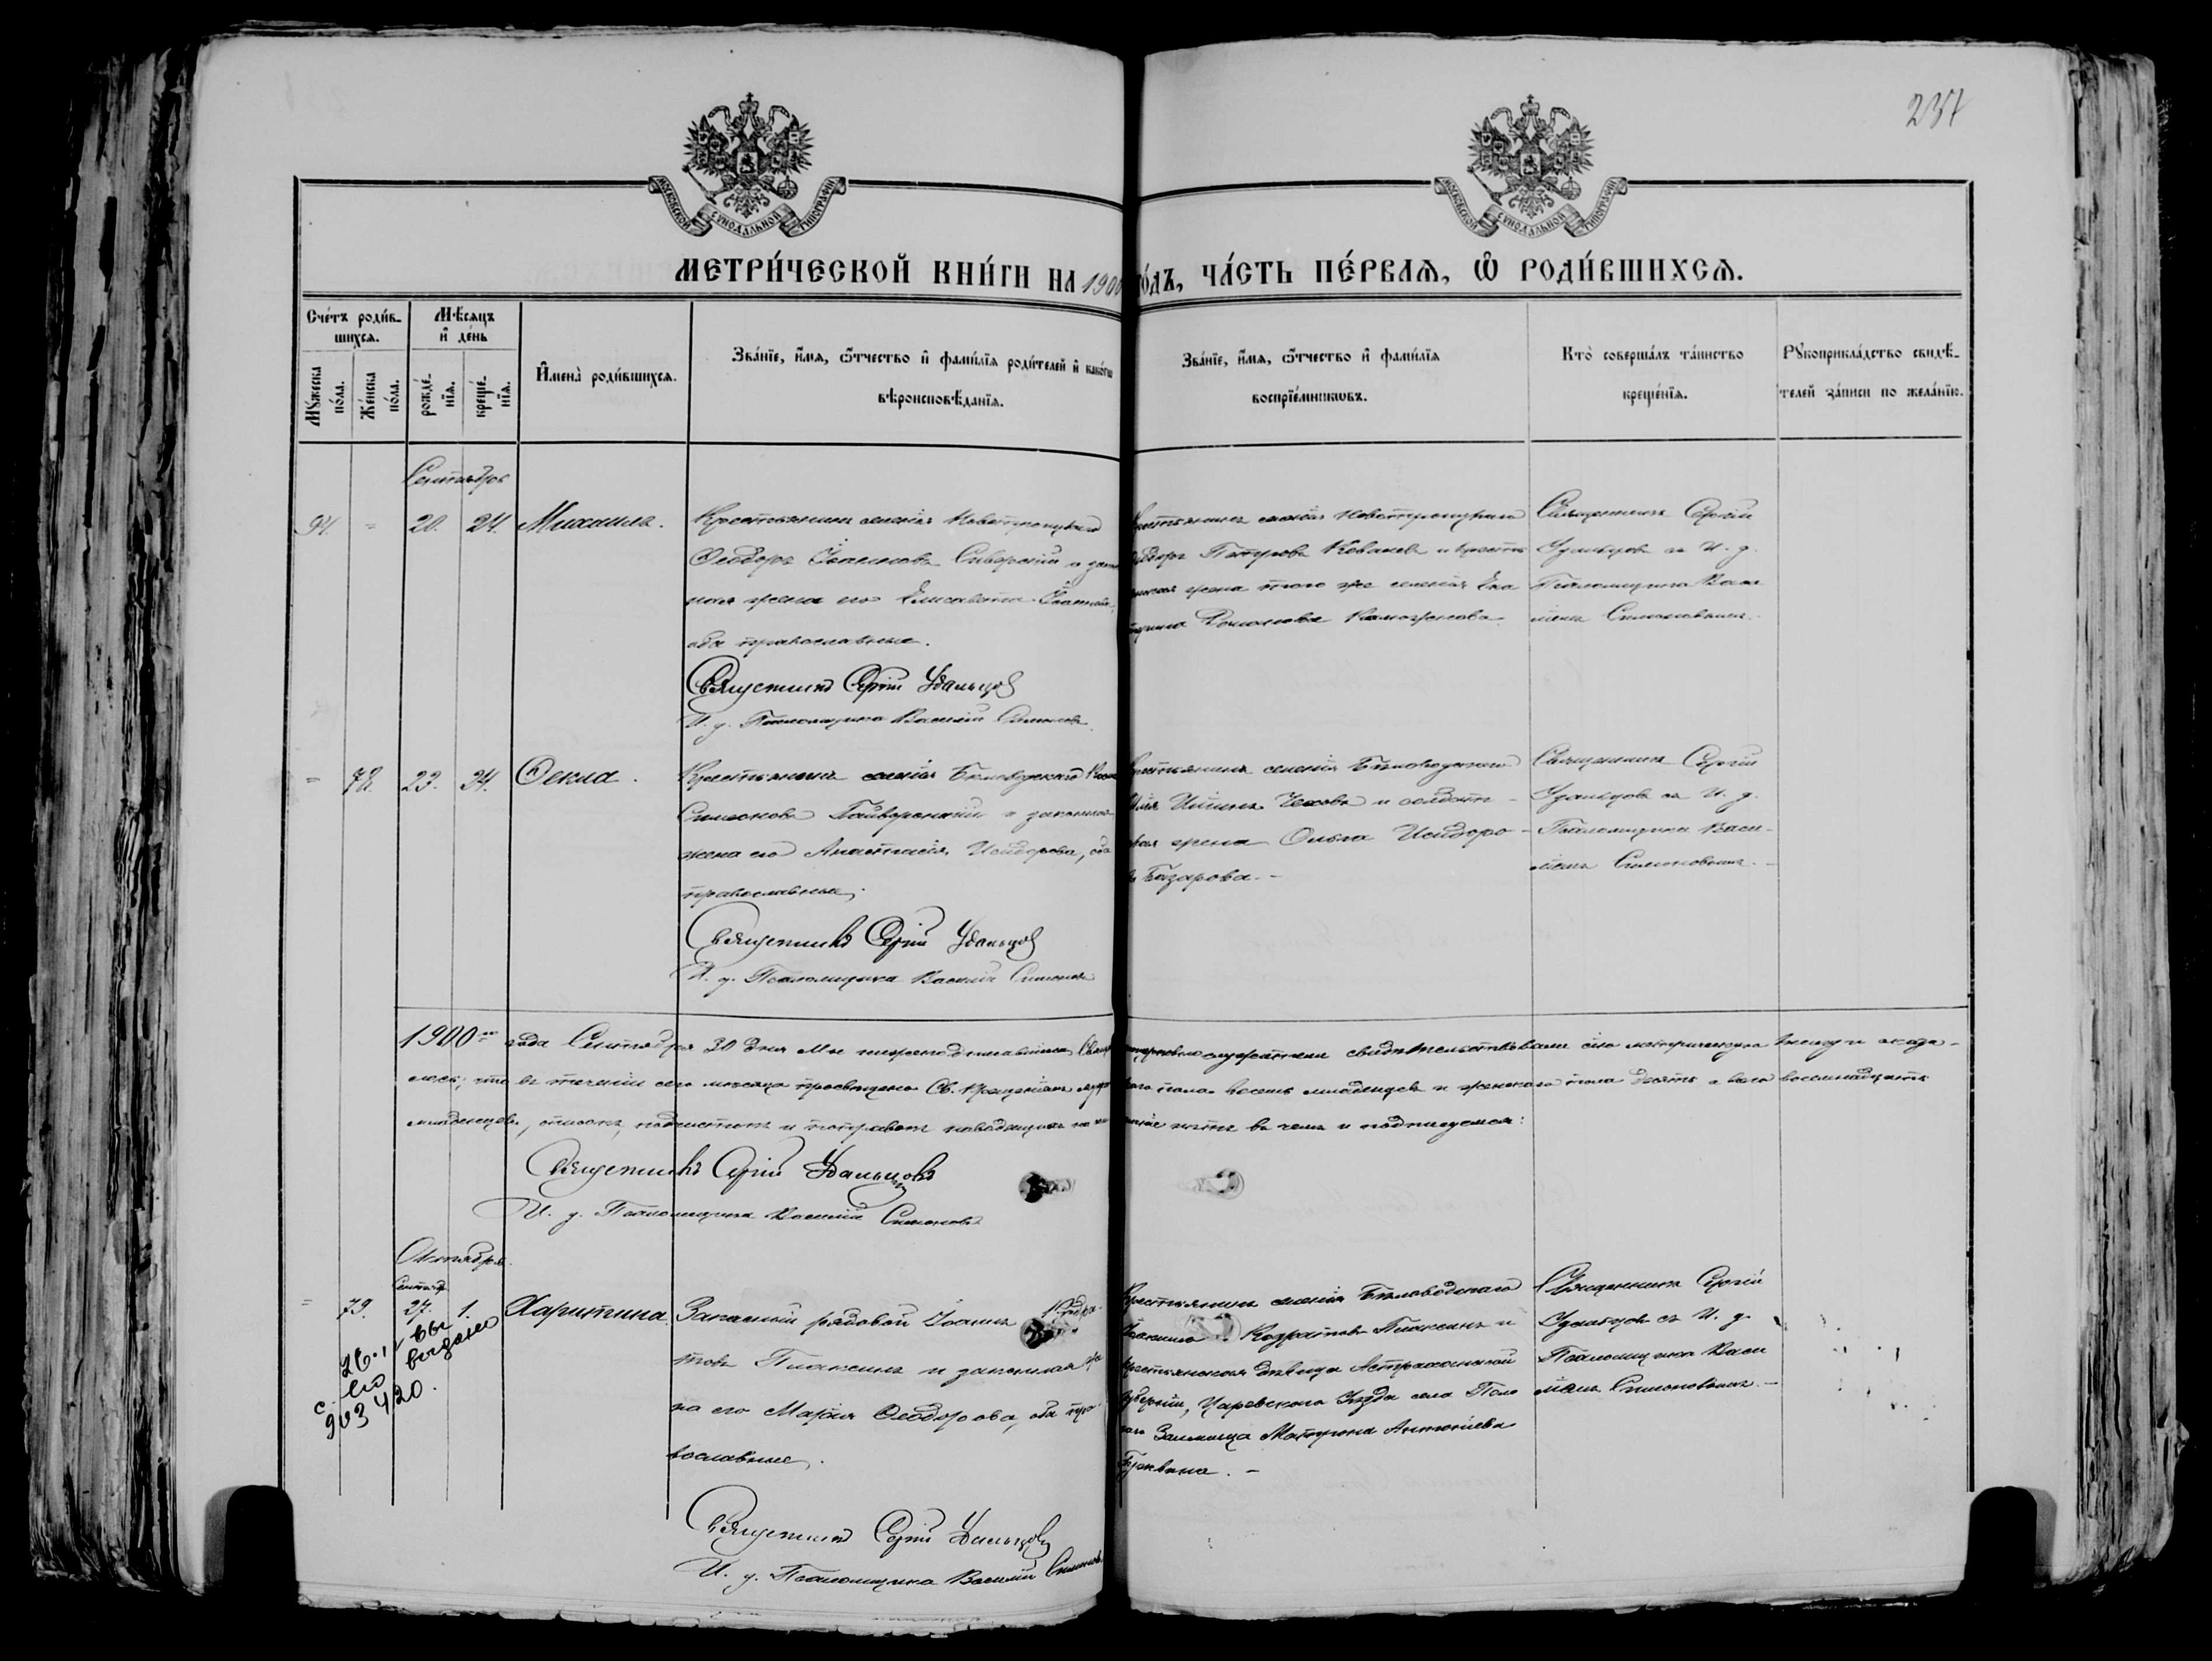 237
МОСКОВСКОЙ СѴНОДАЛЬНОЙ ТИПОГРАФІИ
МОСКОВСКОЙ СѴНОДАЛЬНОЙ ТИПОГРАФІИ
МЕТРИ́ЧЕСКОЙ КНИ́ГИ НА 1900 ГО́ДЪ, ЧА́СТЬ ПЕ́РВАЯ, Ѽ РОДИ́ВШИХСѦ.
Сче́тъ роди́в-
шихсѧ.
Мꙋ́жеска
по́ла.
Же́нска
по́ла.
Мѣ́сѧцъ
и҆ де́нь
рожде́-
нїѧ.
креще́-
нїѧ.
И҆мена̀ роди́вшихсѧ.
Зва́нїе, и҆́мѧ, ѻ҆́тчество и҆ фами́лїѧ роди́телей и҆ како́гѡ
вѣроисповѣ́данїѧ.
Зва́нїе, и҆́мѧ, ѻ҆́тчество и҆ фами́лїѧ
воспрїе́мникѡвъ.
Кто̀ соверша́лъ та́инство
креще́нїѧ.
Рꙋкоприкла́дство свидѣ́-
телей за́писи по жела́нїю.
Сентябрь
94. = 20. 24. Михаилъ.
Крестьянинъ селенія Новотроицкаго
Ѳеодоръ Іоанновъ Сиворскій и закон
ная жена его Елисавета Іоаннова,
оба православные.
Священникъ Сергій Удальцовъ
И. д. Псаломщика Василій Симоновъ
Крестьянинъ селенія Новотроицкаго
Ѳедоръ Петровъ Коваль и кресть
янская жена того же селенія Ека
терина
Священникъ Сергій
Удальцовъ съ И. д.
Псаломщика Васи
ліемъ Симоновымъ.
= 78. 23. 24. Ѳекла.
Крестьянинъ селенія Бѣловодскаго
Симеоновъ Гайворонскій и законная
жена его Анастасія Исидорова, оба
православные.
Священникъ Сергій Удальцовъ
И. д. Псаломщика Василій Симоновъ
Крестьянинъ селенія Бѣловодскаго
Чеховъ и солдат-
ская жена Ольга Исидоро-
ва Базарова. -
Священникъ Сергій
Удальцовъ съ И. д.
Псаломщика Васи-
ліемъ Симоновымъ. -
1900го года Сентября 30 дня Мы нижеподписавшіеся, Священно церковнослужители свидѣтельствовали сію метрическую книгу и оказа-
лось, что въ теченіи сего мѣсяца просвѣщено Св. Крещеніемъ мужескаго пола восемь младенцевъ и женскаго пола десять а всего восемнадцать
младенцевъ, описокъ, подчистокъ и поправокъ наводящихъ сомнѣніе нѣтъ въ чемъ и подписуемся:
Священникъ Сергій Удальцовъ
И. д. Псаломщика Василій Симоновъ
Октябрь.
Сентяб.
= 79. 27. 1. Харитина.
вы
выдано
с
903420.
Запасный рядовой Іоаннъ
товъ Плаксинъ и законная же
на его Марія Ѳеодорова, оба пра-
вославные.
Священникъ Сергій Удальцовъ
И. д. Псаломщика Василій Симоновъ
Крестьянинъ селенія Бѣловодскаго
Плаксинъ и
крестьянская дѣвица Астраханской
губерніи, Царевскаго уѣзда села
Займища Матрона Антоніева
Священникъ Сергій
Удальцовъ съ И. д.
Псаломщика Васи
ліемъ Симоновымъ. -